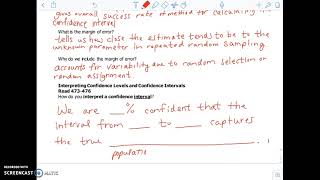 gives overall success rate of method for calculating the
confidence interval
What is the margin of error?
tells us how close the estimate tends to be to the
unknown parameter in repeated random sampling
Why do we include the margin of error?
accounts for variability due to random selection or
random assignment.
Interpreting Confidence Levels and Confidence Intervals
Read 473-476
How do you interpret a confidence interval?
We are __% confident that the
interval from ___ to ___ captures
the true ____________.
populatio
RECORDED WITH
SCREENCAST MATIC